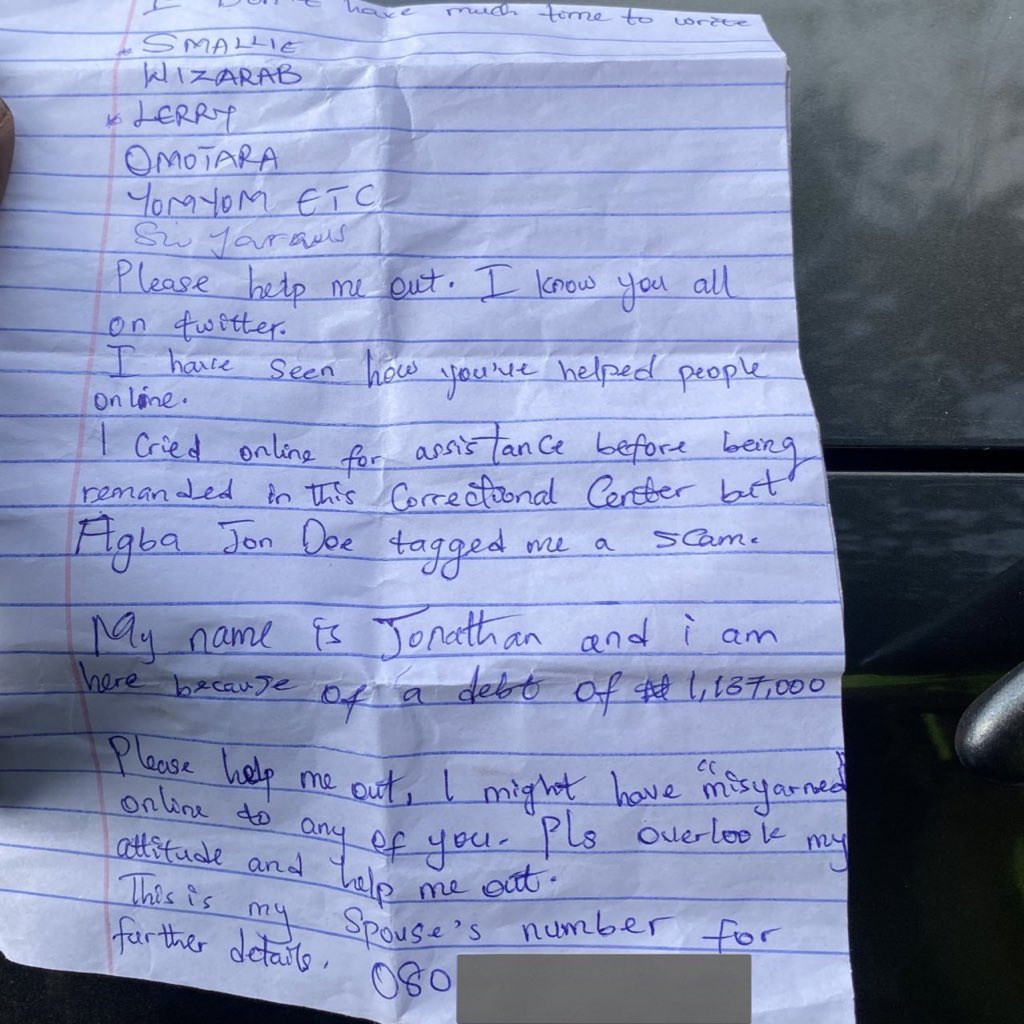 I Don't have much time to write
SMALLIE
WIZARAB
LERRY
OMOTARA
YOMYOM ETC
Please help me out. I know you all
on twitter.
I have seen how you've helped people
online.
I Cried online for assistance before being
remanded in this Correctional Center but
Agba Jon Doe tagged me a scam.
My name is Jonathan and i am
here because of a debt of ₦1,137,000
Please help me out, I might have "misyarned"
online to any of you. Pls overlook my
attitude and help me out.
This is my Spouse's number for
further details. 080